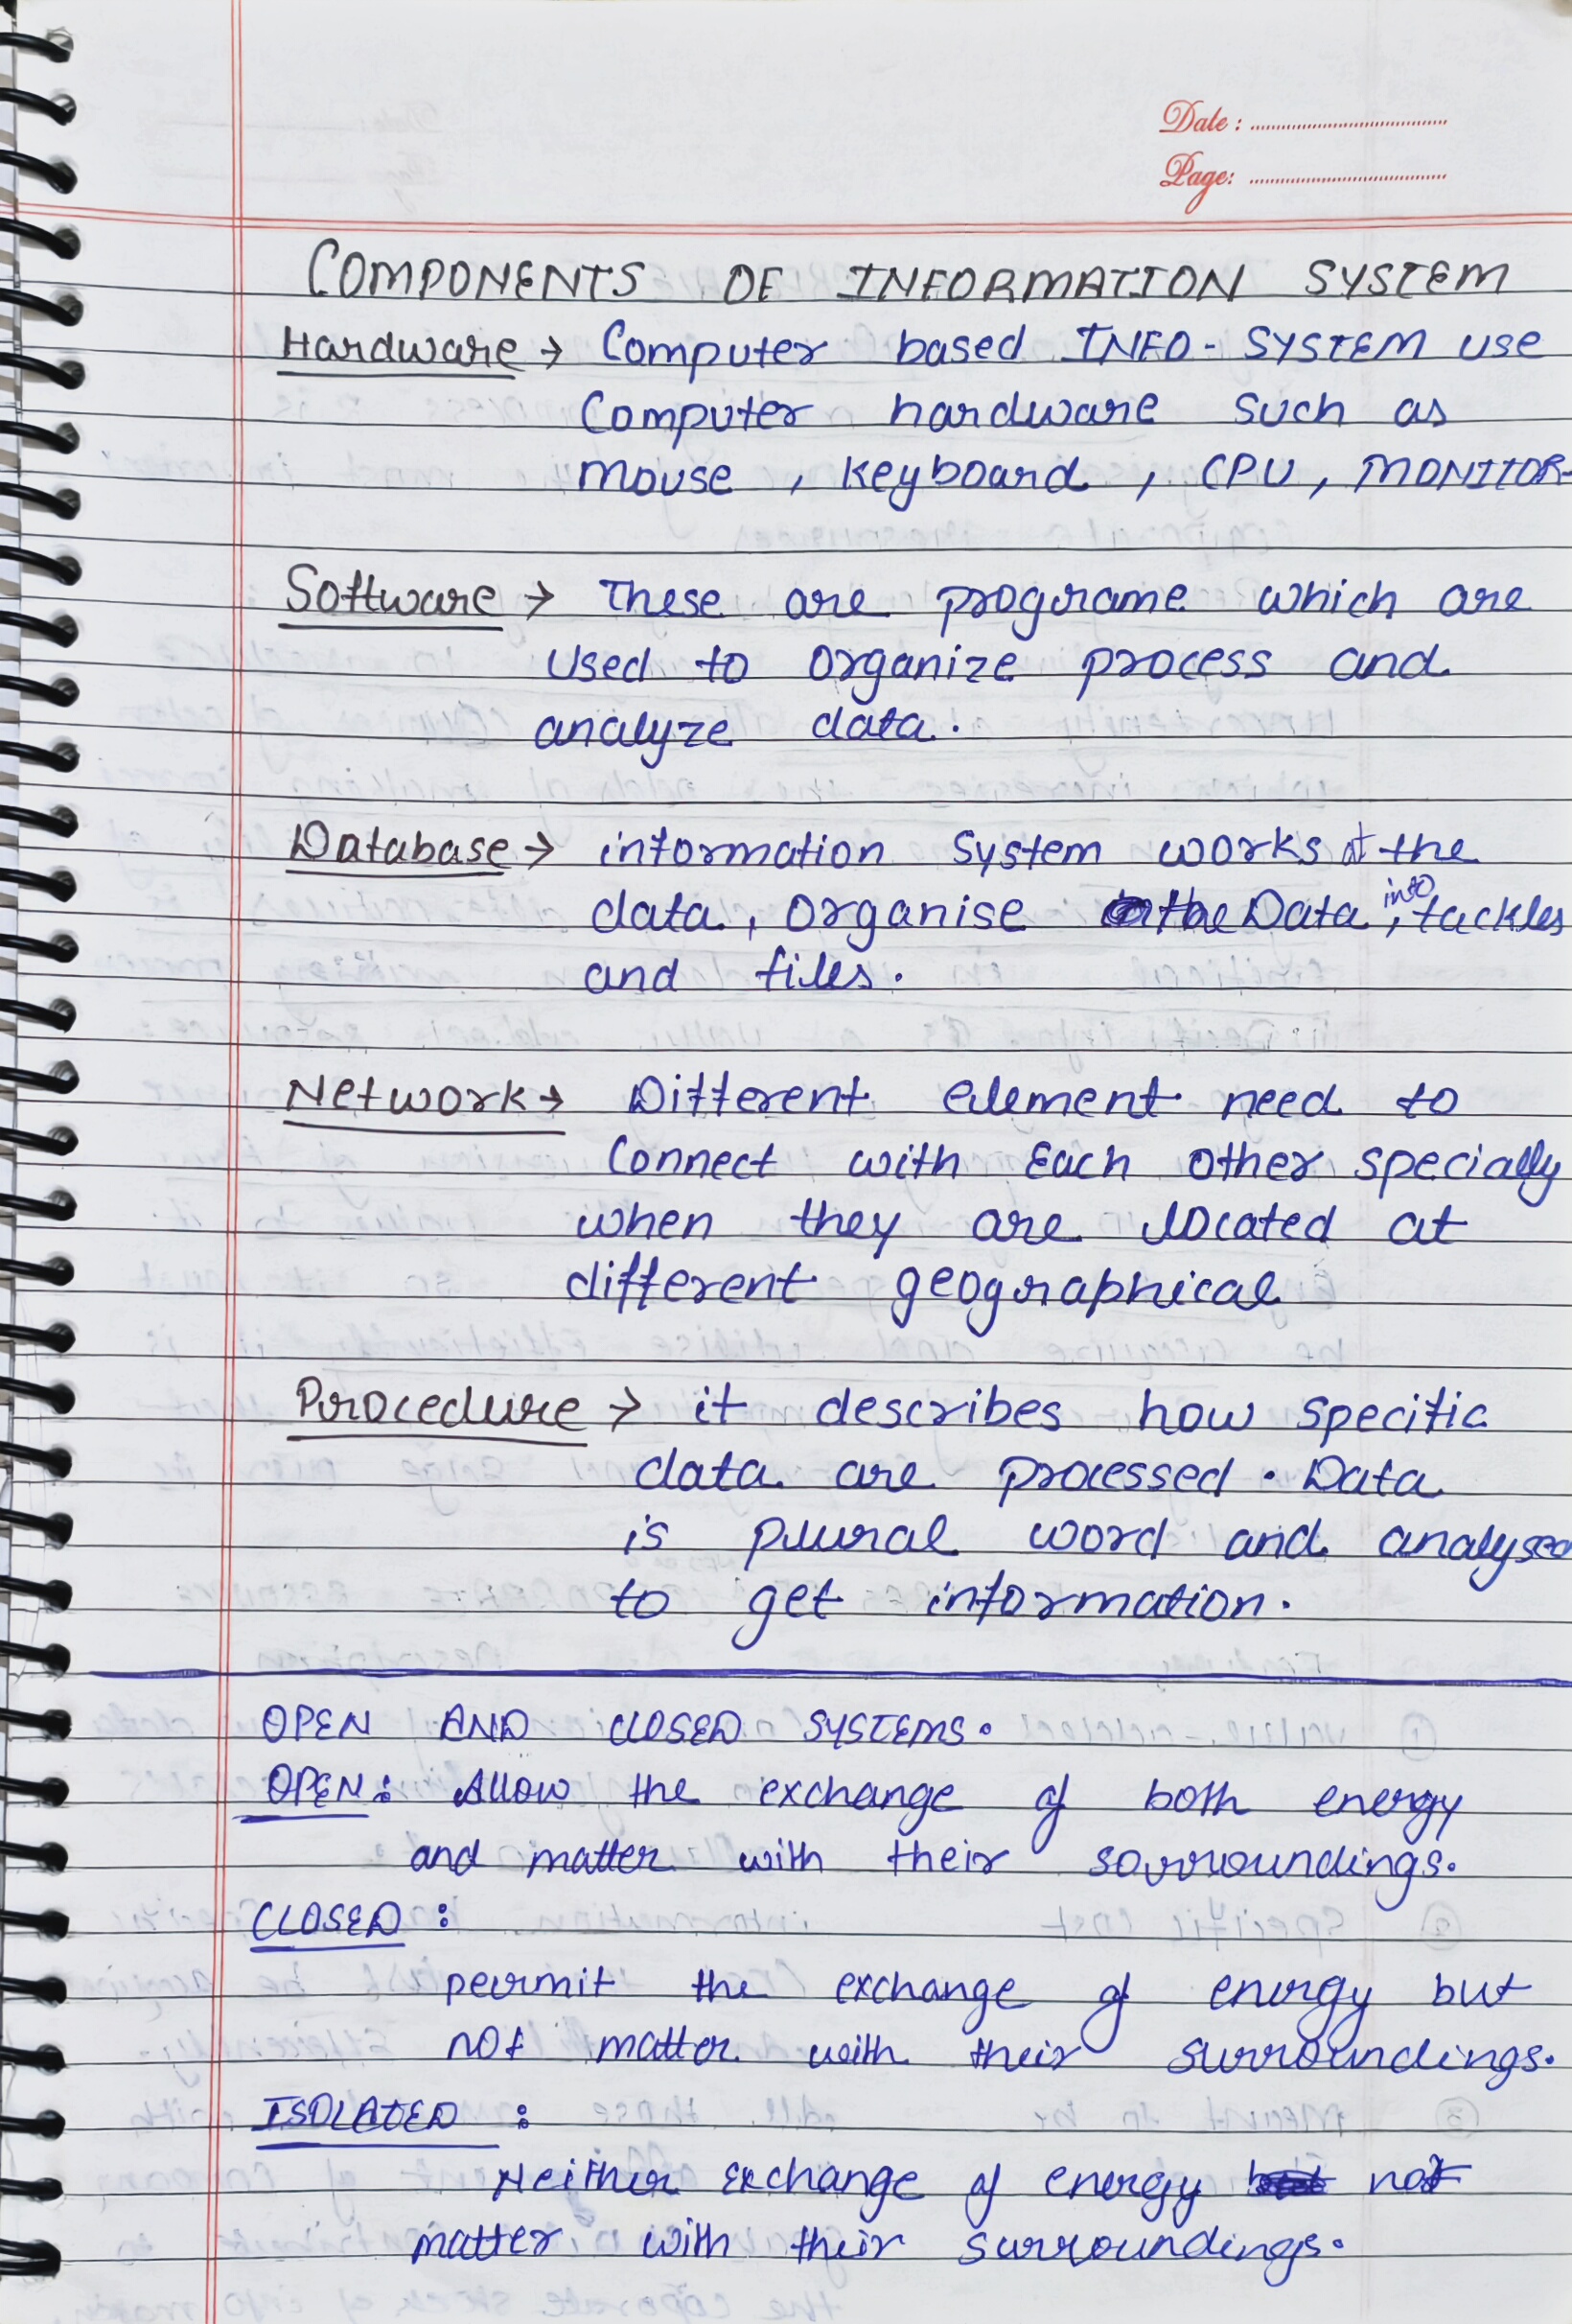 Date :
Page:
COMPONENTS OF INFORMATION SYSTEM
Hardware → Computer based INFO-SYSTEM use
Computer hardware such as
mouse, keyboard, CPU, MONITOR
Software → These are programe which are
used to organize process and
analyze data.
Database → information system works at the
data, organise the Data, into tackles
and files.
Network → Different element need to
Connect with Each other specially
when they are located at
different geographical
Procedure → it describes how specific
data are processed. Data
is plural word and analysed
to get information.
OPEN AND CLOSED SYSTEMS.
OPEN: Allow the exchange of both energy
and matter with their sorroundings.
CLOSED :
permit the exchange of energy but
not matter with their surroundings.
ISOLATED :
Neither Exchange of energy not
matter with their surroundings.